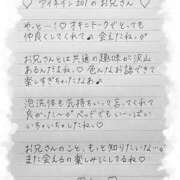 ♡ アイネイン201のお兄さん ♡
やっと…♡オキニトークとっても
仲良くしてくれて♪会えたね。♡
お兄さんとは共通の趣味が沢山
あるんだよね♡色んなお話できて
楽しすぎちゃったなぁ♪
泡洗体も気持ちいいって言ってくれて
良かったー♡ベッドでもいっぱい
いちゃいちゃしたね。♡
お兄さんのこと、もっと知りたいなー♡
また会えるの楽しみにしてるね♡